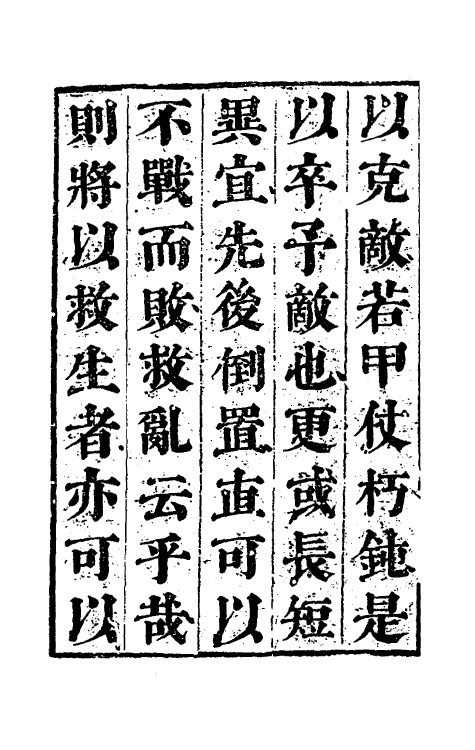 以克敵若甲仗朽鈍是
以卒予敵也更或長短
異宜先後倒置直可以
不戰而敗救亂云乎哉
則將以救生者亦可以